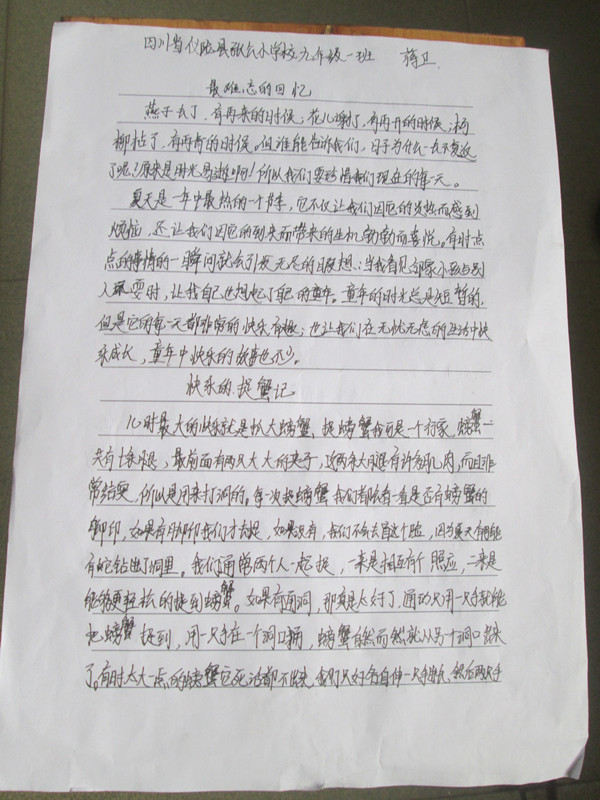 四川省仪陇县张公小学校九年级一班 蒋卫
最难忘的回忆
燕子去了,有再来的时候;花儿谢了,有再开的时候;杨
柳枯了,有再青的时候。但谁能告诉我们,日子为什么一去不复返
了呢?原来是时光易逝啊!所以我们要珍惜我们现在的每一天。
夏天是一年中最热的一个节季,它不仅让我们因它的炎热而感到
烦恼,还让我们因它的到来而带来的生机勃勃而喜悦。有时点
点的事情的一瞬间就会引发无尽的遐想:当我看见邻家小孩与别
人玩耍时,让我自己也想起了自己的童年。童年的时光总是短暂的,
但是它的每一天都非常的快乐有趣;也让我们在无忧无虑的生活中快
乐成长,童年中快乐的故事也不少。
快乐的捉蟹记
儿时最大的快乐就是扒大螃蟹,捉螃蟹我可是一个行家,螃蟹一
共有七条腿,最前面有两只大大的夹子,这两条大腿有许多肌肉,而且非
常结实,所以是用来打洞的。每一次捉螃蟹我们都会看一看是否有螃蟹的
脚印,如果有脚印我们才去捉,如果没有,我们不会去冒这个险,因为夏天有可能
有蛇钻进了洞里。我们通常两个人一起捉,一来是相互有个照应,二来是
能够更轻松的捉到螃蟹。如果有两洞,那真是太好了,通的只用一只手就能
把螃蟹捉到,用一只手在一个洞口捅,螃蟹自然而然就从另一个洞口出来
了。有时太大一点的螃蟹它死活都不出来,我们只好各自伸一只手进去,然后两只手